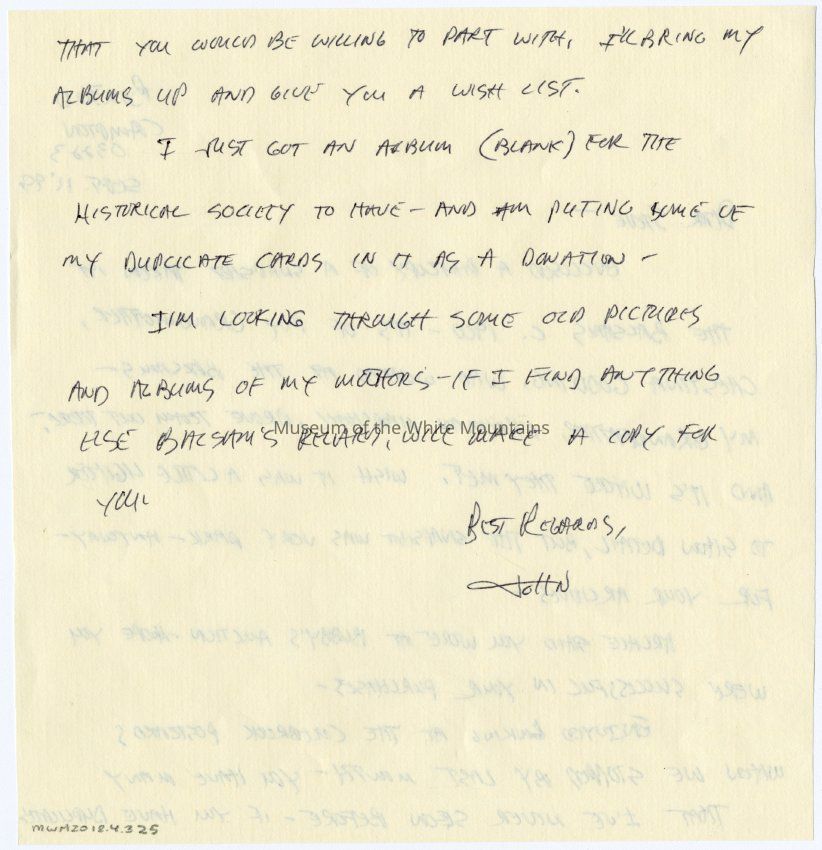 THAT YOU WOULD BE WILLING TO PART WITH, I'LL BRING MY
ALBUMS UP AND GIVE YOU A WISH LIST.
I JUST GOT AN ALBUM (BLANK) FOR THE
HISTORICAL SOCIETY TO HAVE - AND AM PUTING SOME OF
MY DUPLICATE CARDS IN IT AS A DONATION -
I'M LOOKING THROUGH SOME OLD PICTURES
AND ALBUMS OF MY MOTHERS - IF I FIND ANYTHING
ELSE BALSAM'S RELATED, WILL MAKE A COPY FOR
YOU.
Museum of the White Mountains
BEST REGARDS,
JOHN
MWM2018.4.325